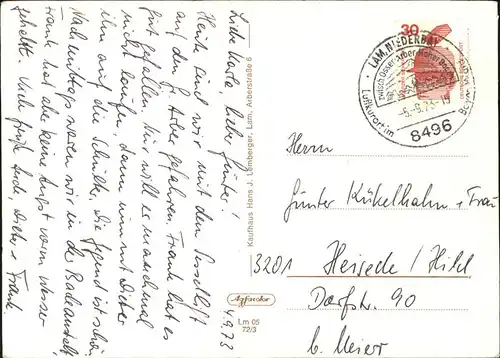 Liebe Karla, lieber Günter!
Heute sind wir mit dem Sessellift
auf den gr. Arber gefahren. Frank hat es
gut gefallen. Nur will er manchmal
nicht laufen, dann nimmt Dieter
ihn auf die Schulter. Die Gegend ist schön.
Nachmittags waren wir in der Badeanstalt
Frank hat gar keine Angst vorm Wasser
gehabt. Viele Grüße Eure, Dieter + Frank.
4.9.73
Kaufhaus Hans J. Lemberger, Lam, Arberstraße 6
Agfacolor
Lm 05
72/3
30
LAM, NIEDERBAY
zwisch. Osser-Arber-Hoher Bogen
Luftkurort im Bayr.
-5.-9.73-19
8496
Herrn
Günter Kükelhahn + Frau
3201 Heisede / Hild
Dorfstr. 90
b. Meier